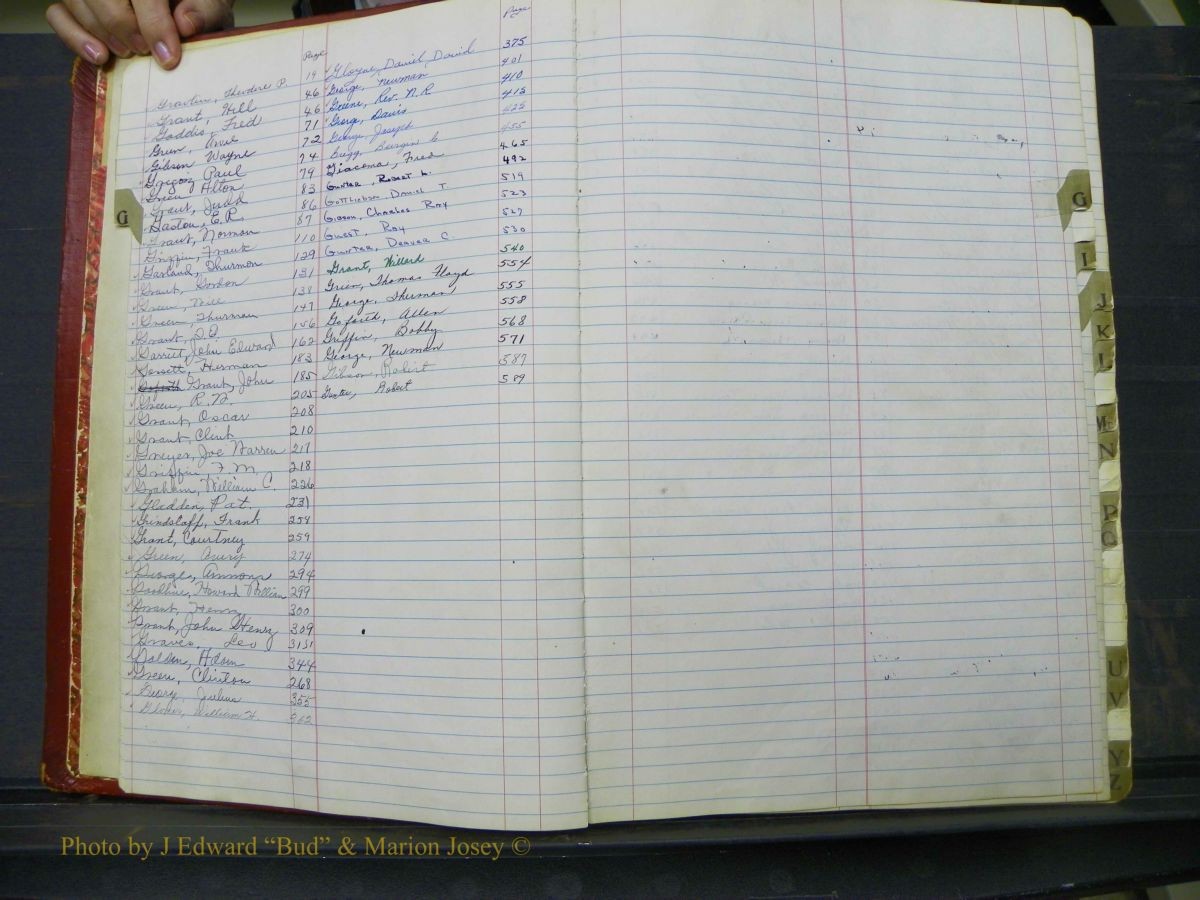 Page
Theodore P. 19
Grant, Will 46
Gaddis, Fred 46
Green, 71
Gibson Wayne 72
Paul 74
Green Alton 79
Grant, Judd 83
Gaston, C.R. 86
Grant, Norman 87
Griffin, Frank 110
Garland, Thurmon 129
Grant, Gordon 131
Green, 138
Green, Thurman 147
Grant, J.D. 156
Garrett, John Edward 162
Gossett, Herman 183
Grant, John 185
Green, R.H. 205
Grant, Oscar 208
Grant, Clint 210
Joe Warren 217
Griffin, F.M. 218
Graham, William C. 226
Gladden, Pat. 231
Grindstaff, Frank 254
Grant, Courtney 259
Green, Avery 274
George, Ammons 294
Howard William 299
Grant, Henry 300
Grant, John Henry 309
Graves, Leo
Golden, Adam 344
Green, Clinton 268
Georg, Julius 355
William H. 362
Page
Gloyne, David David 375
George, Newman 401
Greene, Rev. N.R 410
George, Davis 413
George, Joseph 425
455
Giacoma, Fred 465
Gunter, Robert L. 492
Gottlieb, Daniel T. 519
Gibson, Charles Ray 523
Guest, Roy 527
Gunter, Denver C. 530
Grant, Willard 540
Green, Thomas Floyd 554
George, Sherman 555
Goforth, Allen 558
Griffin, Bobby 568
George, Newman 571
Gibson, Robert 587
Robert 589
G
G
I
J
K
L
Mc
N
P
Q
U
V
Y
Z
Photo by J Edward “Bud” & Marion Josey ©